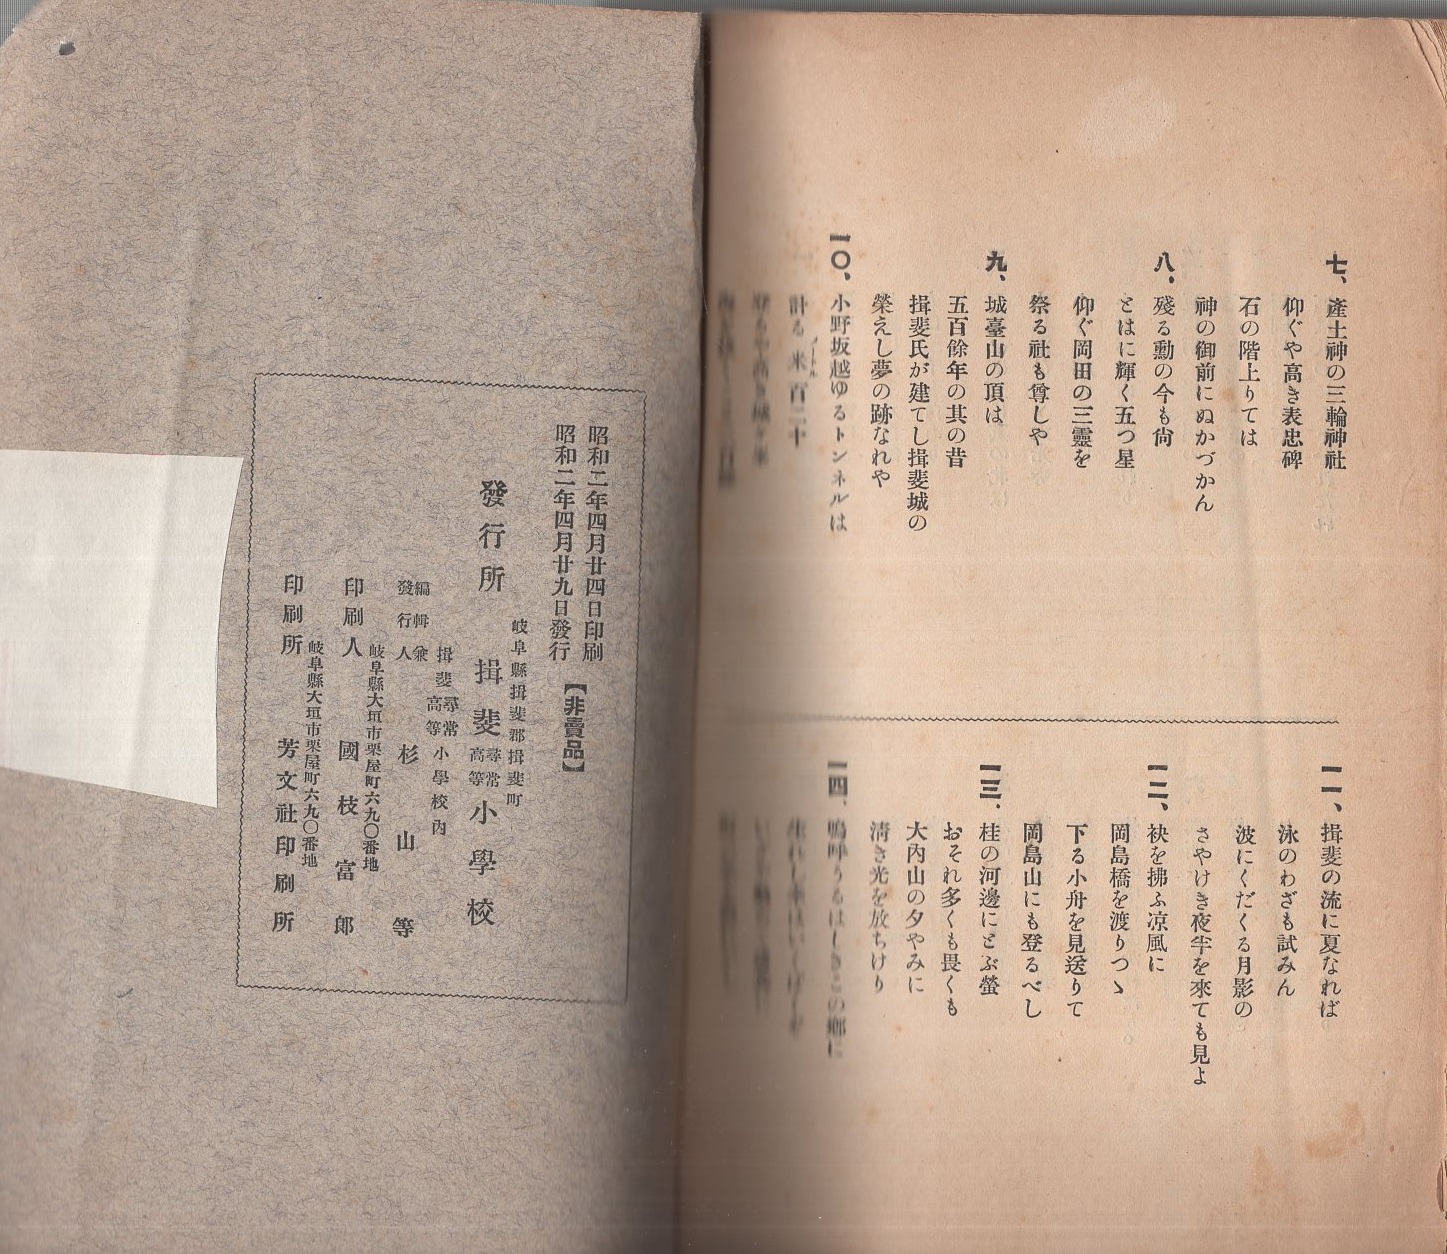 七、產土神の三輪神社
仰ぐや高き表忠碑
石の階上りては
神の御前にぬかづかん
八、殘る勳の今も尙
とはに輝く五つ星
仰ぐ岡田の三靈を
祭る社も尊しや
九、城臺山の頂は
五百餘年の其の昔
揖斐氏が建てし揖斐城の
榮えし夢の跡なれや
一〇、小野坂越ゆるトンネルは
計る米百二十
一一、揖斐の流に夏なれば
泳のわざも試みん
波にくだくる月影の
さやけき夜半を來ても見よ
一二、袂を拂ふ凉風に
岡島橋を渡りつゝ
下る小舟を見送りて
岡島山にも登るべし
一三、桂の河邊にとぶ螢
おそれ多くも畏くも
大內山の夕やみに
淸き光を放ちけり
一四、嗚呼うるはしきこの鄕に
昭和二年四月廿四日印刷
昭和二年四月廿九日發行
【非賣品】
岐阜縣揖斐郡揖斐町
發行所 揖斐尋常高等小學校
揖斐尋常高等小學校內
編輯兼發行人 杉山等
岐阜縣大垣市栗屋町六九〇番地
印刷人 國枝富郎
岐阜縣大垣市栗屋町六九〇番地
印刷所 芳文社印刷所